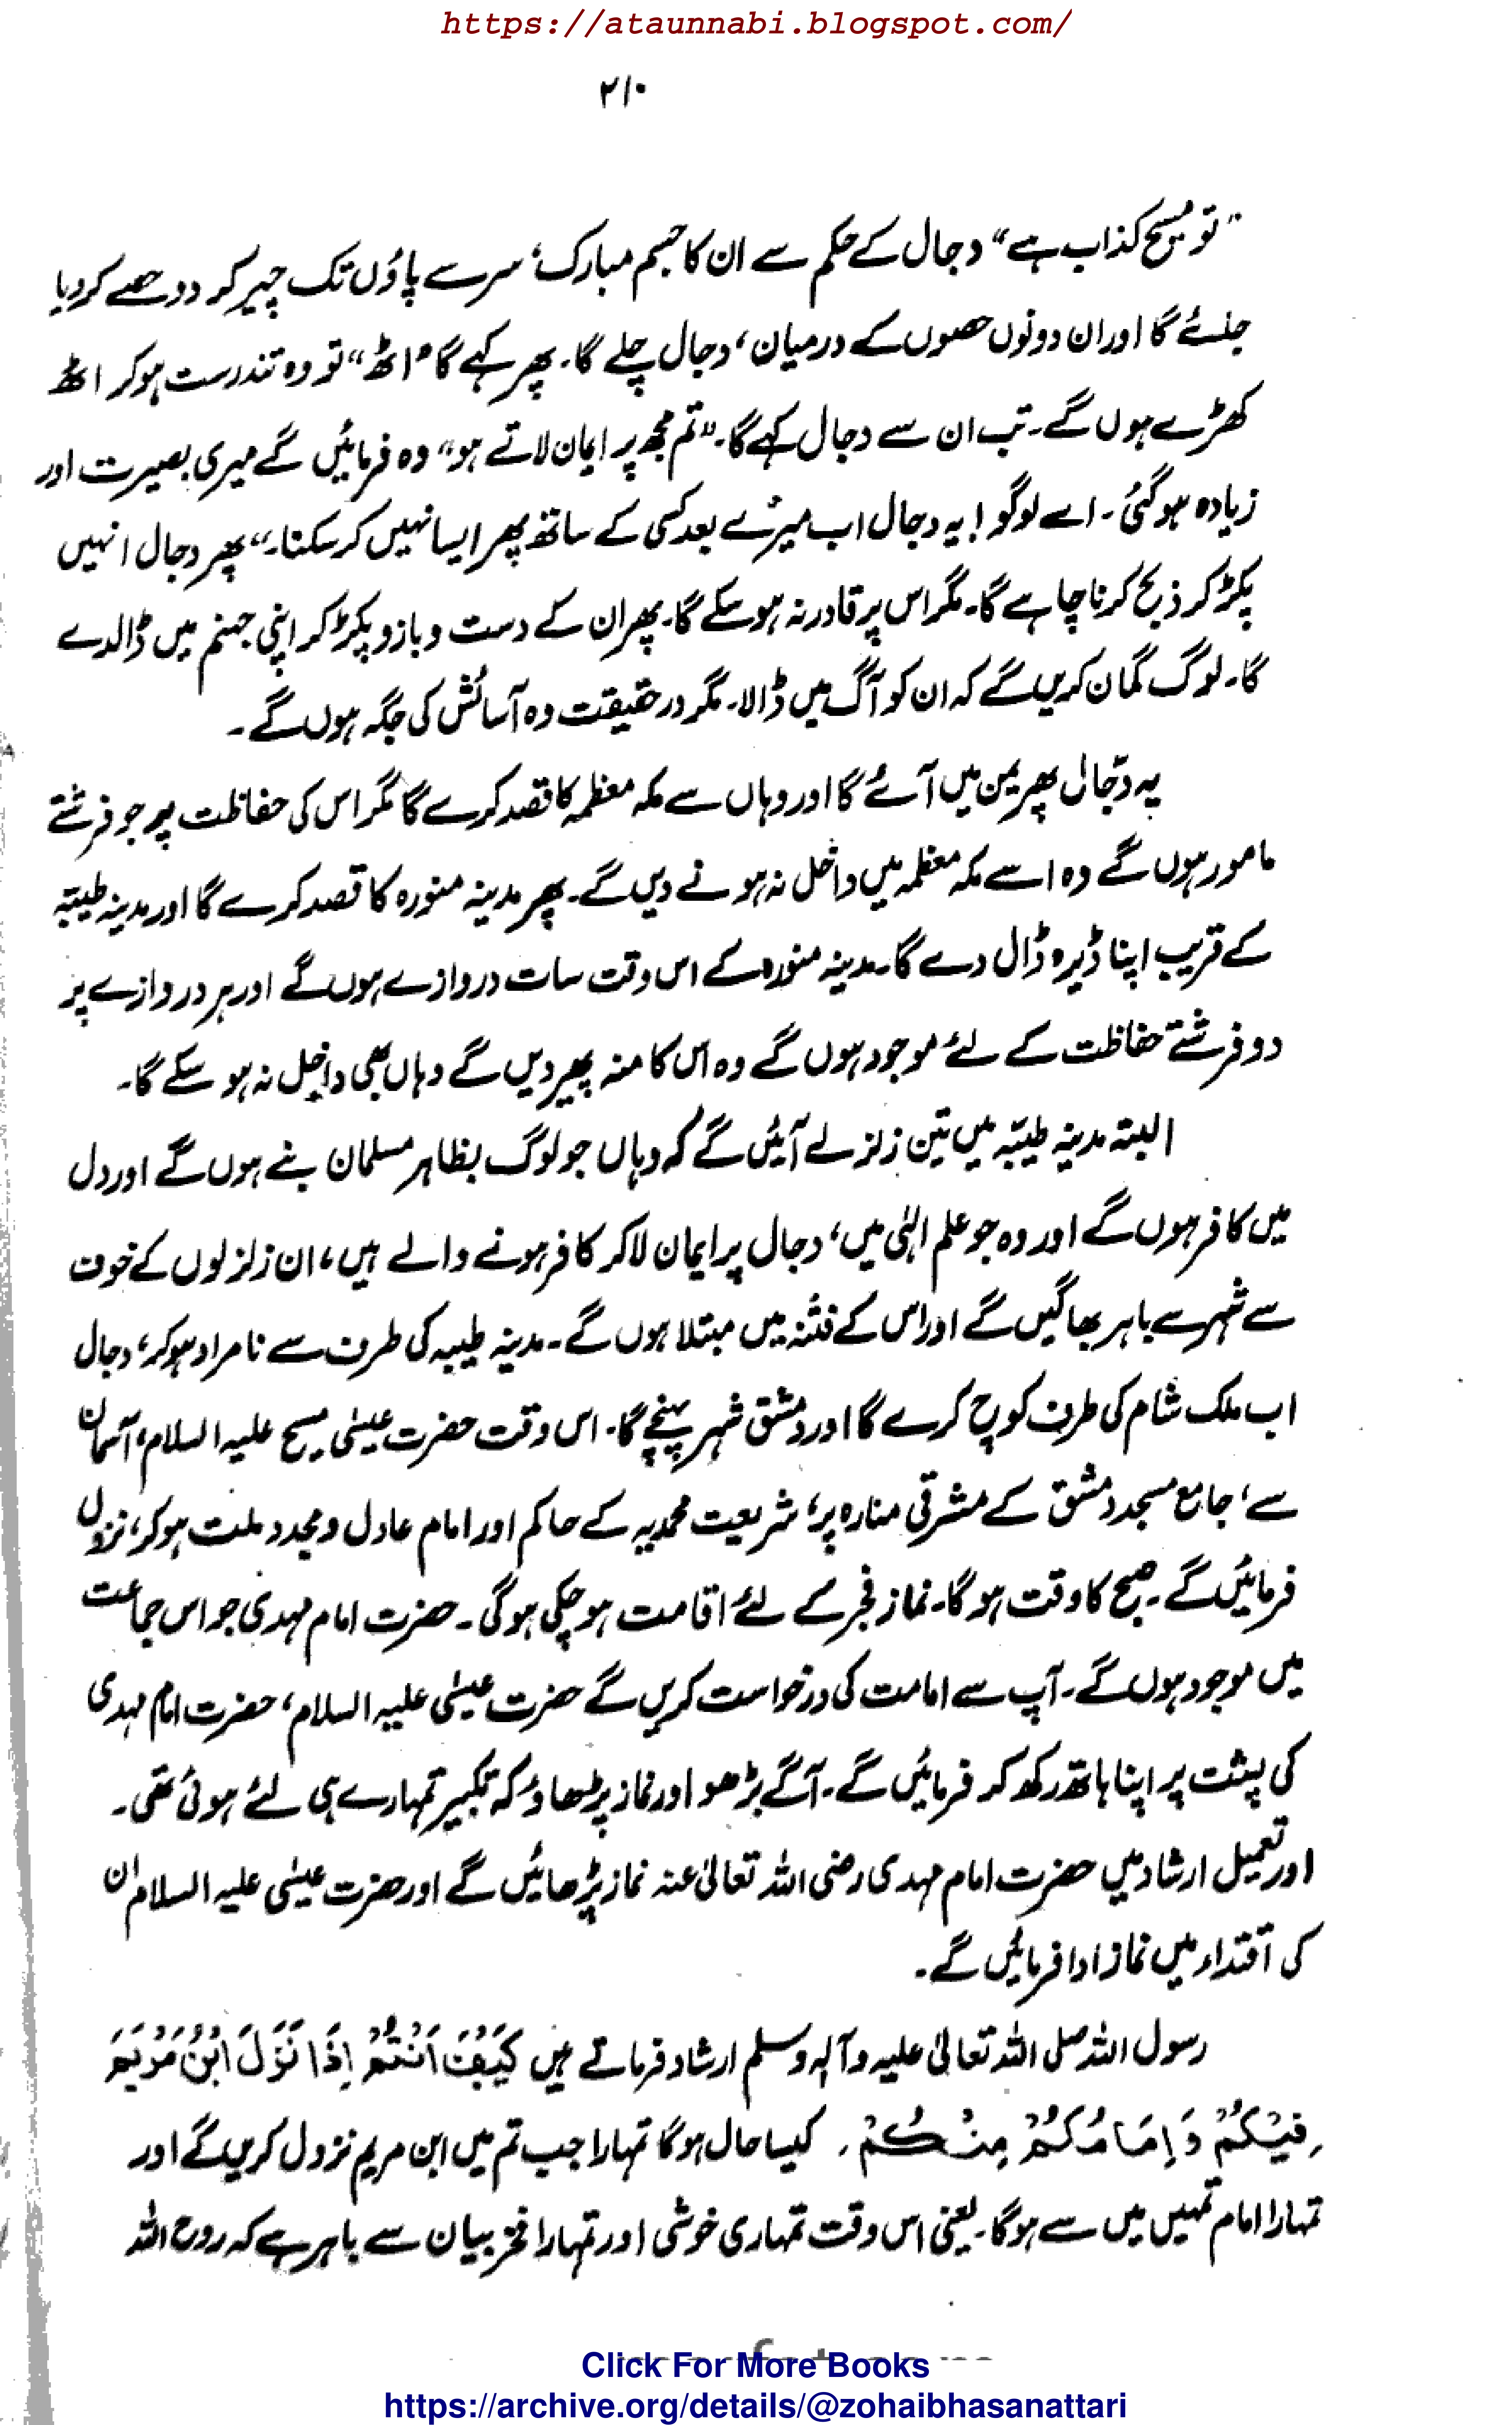 https://ataunnabi.blogspot.com/
۲۱۰
”تو مسیح کذاب ہے“ دجال کے حکم سے ان کا جسم مبارک، سر سے پاؤں تک چیر کر دو حصے کر دیا
جائے گا اور ان دونوں حصوں کے درمیان، دجال چلے گا۔ پھر کہے گا ”اٹھ“ تو وہ تندرست ہو کر اٹھ
کھڑے ہوں گے۔ تب ان سے دجال کہے گا۔ ”تم مجھ پر ایمان لاتے ہو“ وہ فرمائیں گے میری بصیرت اور
زیادہ ہو گئی۔ اے لوگو! یہ دجال اب میرے بعد کسی کے ساتھ پھر ایسا نہیں کر سکتا۔“ پھر دجال انہیں
پکڑ کر ذبح کرنا چاہے گا۔ مگر اس پر قادر نہ ہو سکے گا۔ پھر ان کے دست و بازو پکڑ کر اپنی جہنم میں ڈال دے
گا۔ لوگ گمان کریں گے کہ ان کو آگ میں ڈالا۔ مگر در حقیقت وہ آسائش کی جگہ ہوں گے۔
یہ دجّال پھر یمن میں آئے گا اور وہاں سے مکہ معظمہ کا قصد کرے گا مگر اس کی حفاظت پر جو فرشتے
مامور ہوں گے وہ اسے مکہ معظمہ میں داخل نہ ہونے دیں گے۔ پھر مدینہ منورہ کا قصد کرے گا اور مدینہ طیّبہ
کے قریب اپنا ڈیرہ ڈال دے گا۔ مدینہ منورہ کے اس وقت سات دروازے ہوں گے اور ہر دروازے پر
دو فرشتے حفاظت کے لئے موجود ہوں گے وہ اس کا منہ پھیر دیں گے وہاں بھی داخل نہ ہو سکے گا۔
البتہ مدینہ طیّبہ میں تین زلزلے آئیں گے کہ وہاں جو لوگ بظاہر مسلمان بنے ہوں گے اور دل
میں کافر ہوں گے اور وہ جو علم الٰہی میں، دجال پر ایمان لا کر کافر ہونے والے ہیں، ان زلزلوں کے خوف
سے شہر سے باہر بھاگیں گے اور اس کے فتنہ میں مبتلا ہوں گے۔ مدینہ طیبہ کی طرف سے نامراد ہو کر، دجال
اب ملک شام کی طرف کوچ کرے گا اور دمشق شہر پہنچے گا۔ اس وقت حضرت عیسٰی مسیح علیہ السلام، آسمان
سے، جامع مسجد دمشق کے مشرقی منارہ پر، شریعت محمدیہ کے حاکم اور امام عادل و مجدد ملت ہو کر، نزول
فرمائیں گے۔ صبح کا وقت ہو گا۔ نماز فجر کے لئے اقامت ہو چکی ہو گی۔ حضرت امام مہدی جو اس جماعت
میں موجود ہوں گے۔ آپ سے امامت کی درخواست کریں گے حضرت عیسٰی علیہ السلام، حضرت امام مہدی
کی پشت پر اپنا ہاتھ رکھ کر فرمائیں گے۔ آگے بڑھو اور نماز پڑھاؤ کہ تکبیر تمہارے ہی لئے ہوئی تھی۔
اور تعمیل ارشاد میں حضرت امام مہدی رضی اللہ تعالیٰ عنہ نماز پڑھائیں گے اور حضرت عیسٰی علیہ السلام ان
کی اقتداء میں نماز ادا فرمائیں گے۔
رسول اللہ صلی اللہ تعالیٰ علیہ وآلہ وسلم ارشاد فرماتے ہیں كَيْفَ اَنْتُمْ اِذَا نَزَلَ ابْنُ مَرْيَمَ
فِيْكُمْ وَاِمَامُكُمْ مِنْكُمْ۔ کیسا حال ہو گا تمہارا جب تم میں ابن مریم نزول کریں گے اور
تمہارا امام تمہیں میں سے ہو گا۔ یعنی اس وقت تمہاری خوشی اور تمہارا فخر بیان سے باہر ہے کہ روح اللہ
Click For More Books
https://archive.org/details/@zohaibhasanattari